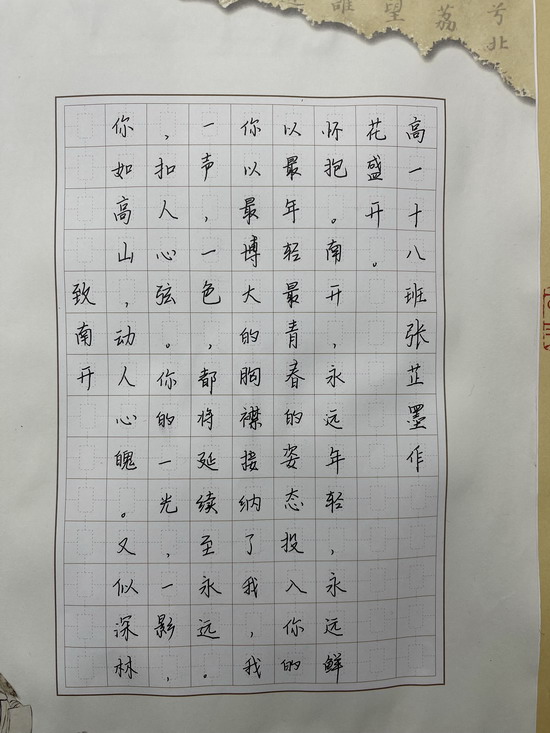 致南开
你如高山，动人心魄。又似深林
，扣人心弦。你的一光，一影，
一声，一色，都将延续至永远。
你以最博大的胸襟接纳了我，我
以最年轻最青春的姿态投入你的
怀抱。南开，永远年轻，永远鲜
花盛开。
高一十八班张芷墨作
望
荔
兮北